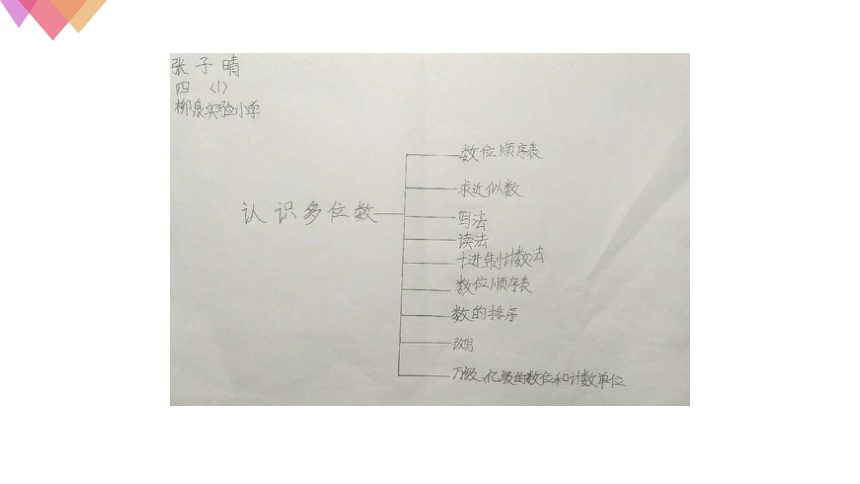 张子晴
四 (1)
柳泉实验小学
数位顺序表
求近似数
认识多位数
写法
读法
十进制计数法
数位顺序表
数的排序
改写
万级、亿级的数位和计数单位